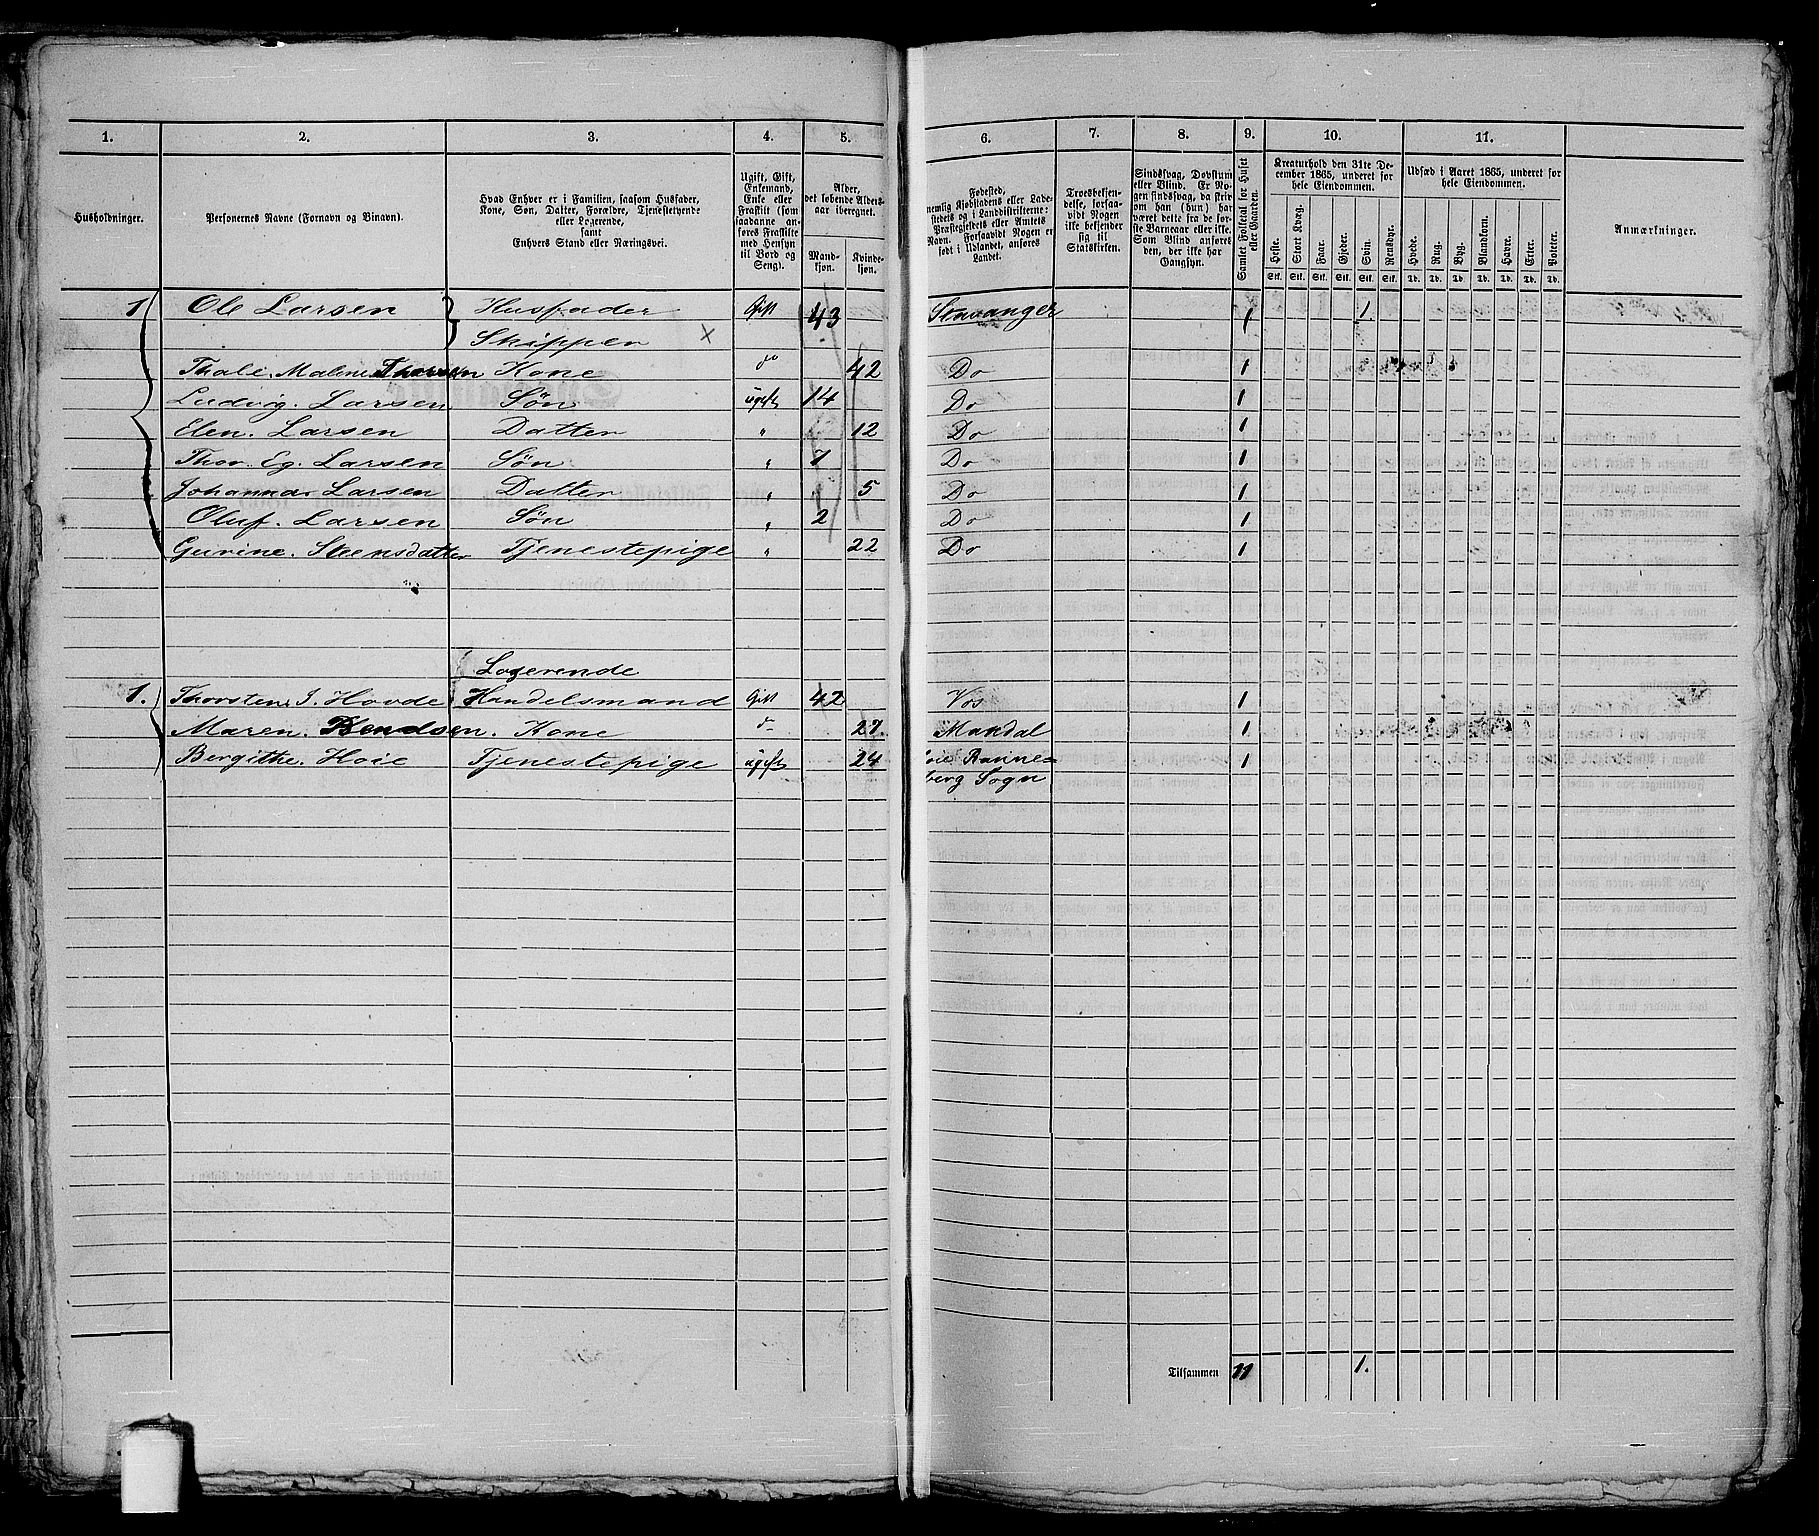 1. 2. 3. 4. 5. 6. 7. 8. 9. 10. 11.
Husholdninger.
Personernes Navne (Fornavn og Binavn).
Hvad Enhver er i Familien, saasom Husfader,
Kone, Søn, Datter, Forældre, Tjenestetyende
eller Logerende,
samt
Enhvers Stand eller Næringsvei.
Ugift, Gift,
Enkemand,
Enke eller
Fraskilt (som
saadanne an-
føres Fraskilte
med Hensyn
til Bord og
Seng).
Alder,
det løbende Alders-
aar iberegnet.
Mand-
kjøn.
Kvinde-
kjøn.
Fødested,
nemlig Kjøbstadens eller Lade-
stedets og i Landdistrikterne:
Præstegjeldets eller Amtets
Navn. Forsaavidt Nogen er
født i Udlandet, anføres
Landet.
Troesbekjen-
delse, forsaa-
vidt Nogen
ikke bekjender
sig til
Statskirken.
Sindssvag, Døvstum
eller Blind. Er No-
gen sindssvag, da skri-
ves om han (hun) har
været dette fra de før-
ste Barneaar eller ikke.
Som Blind anføres
den, der ikke har
Gangsyn.
Samlet Folketal for Huset
eller Gaarden.
Kreaturhold den 31te De-
cember 1865, underet for
hele Eiendommen.
Heste. Stort Kvæg. Faar. Gjeder. Svin. Rensdyr.
Stk. Stk. Stk. Stk. Stk. Stk.
Udsæd i Aaret 1865, underet for
hele Eiendommen.
Hvede. Rug. Byg. Blandkorn. Havre. Erter. Poteter.
Td. Td. Td. Td. Td. Td. Td.
Anmærkninger.
1 Ole Larsen Husfader Gift 43 Stavanger 1 1.
Skipper ×
Thale. Maline Thorsen Kone do 42 Do 1
Ludvig. Larsen Søn ugift 14 Do 1
Elen. Larsen Datter " 12 Do 1
Thor. Eg. Larsen Søn " 7 Do 1
Johanna Larsen Datter " 5 Do 1
Oluf. Larsen Søn " 2 Do 1
Gurine. Steensdatter Tjenestepige " 22 Do 1
Logerende
1. Thorsten. J. Hovde Handelsmand Gift 42 Vos 1
Maren. Bendsen. Kone do 27. Mandal 1
Bergithe. Hoie Tjenestepige ugift 24 Hoie Rænne- 1
berg Sogn
Tilsammen 11 1.